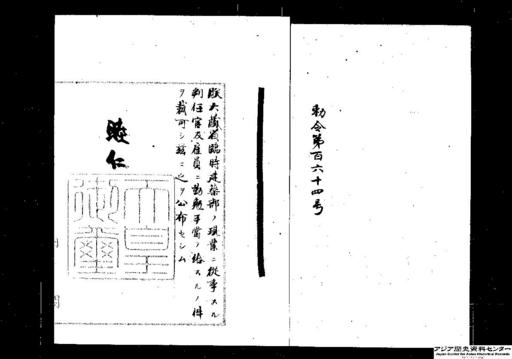 勅令第百六十四号
朕大藏省臨時建築部ノ現業ニ從事スル
判任官及雇員ニ勤勉手當ヲ給スルノ件
ヲ裁可シ茲ニ之ヲ公布セシム
睦仁
天皇御璽
アジア歴史資料センター
Japan Center for Asian Historical Records